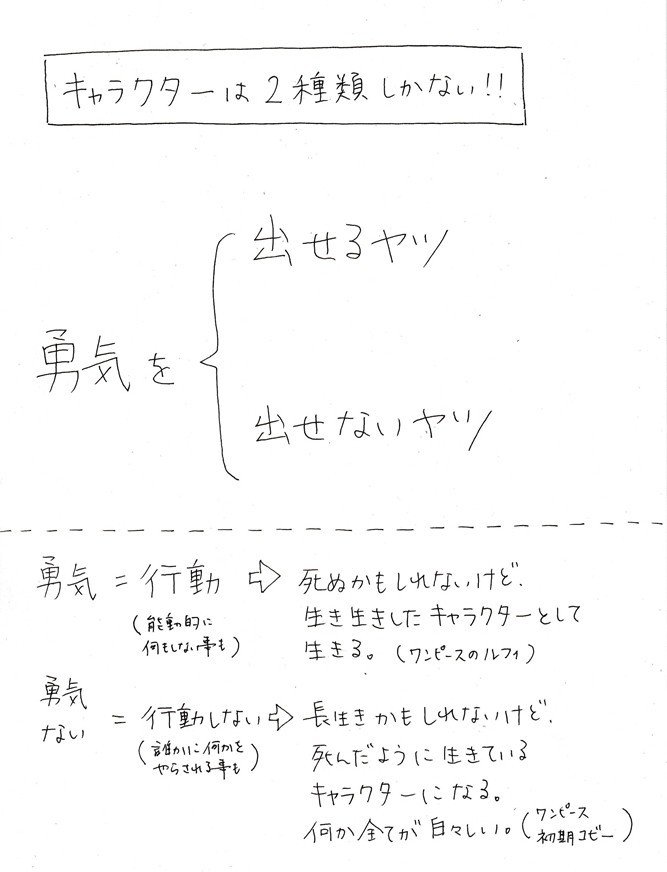 キャラクターは2種類しかない!!
出せるヤツ
勇気を
出せないヤツ
勇気 = 行動 ⇨ 死ぬかもしれないけど、
(能動的に
何もしない事も)
生き生きしたキャラクターとして
生きる。(ワンピースのルフィ)
勇気
ない = 行動しない ⇨ 長生きかもしれないけど、
(誰かに何かを
やらされる事も)
死んだように生きている
キャラクターになる。
何か全てが白々しい。(ワンピース
初期コビー)